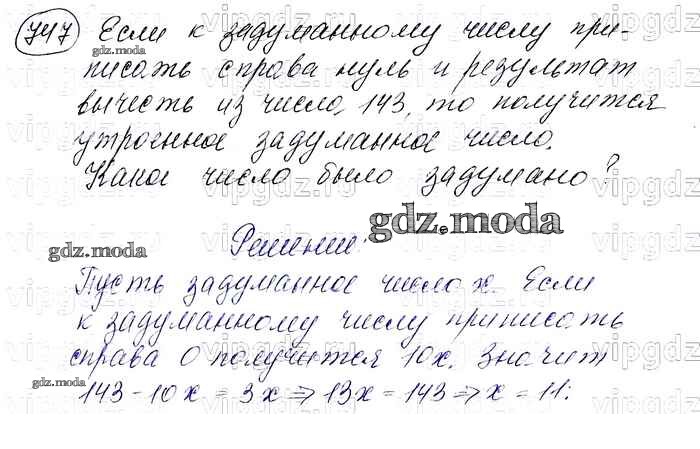 747 Если к задуманному числу при-
писать справа нуль и результат
вычесть из числа 143, то получится
утроенное задуманное число.
Какое число было задумано?
Решение:
Пусть задуманное число x. Если
к задуманному числу приписать
справа 0 получится 10x. Значит
143 - 10x = 3x ⇒ 13x = 143 ⇒ x = 11.
gdz.moda
gdz.moda
gdz.moda
gdz.moda
vipgdz.ru